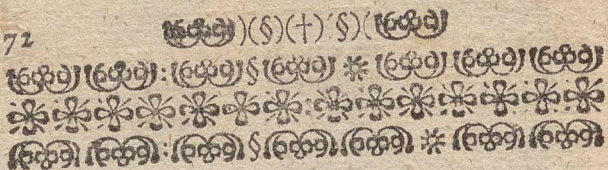 72 )(§)(†)(§)(
: § *
: § *